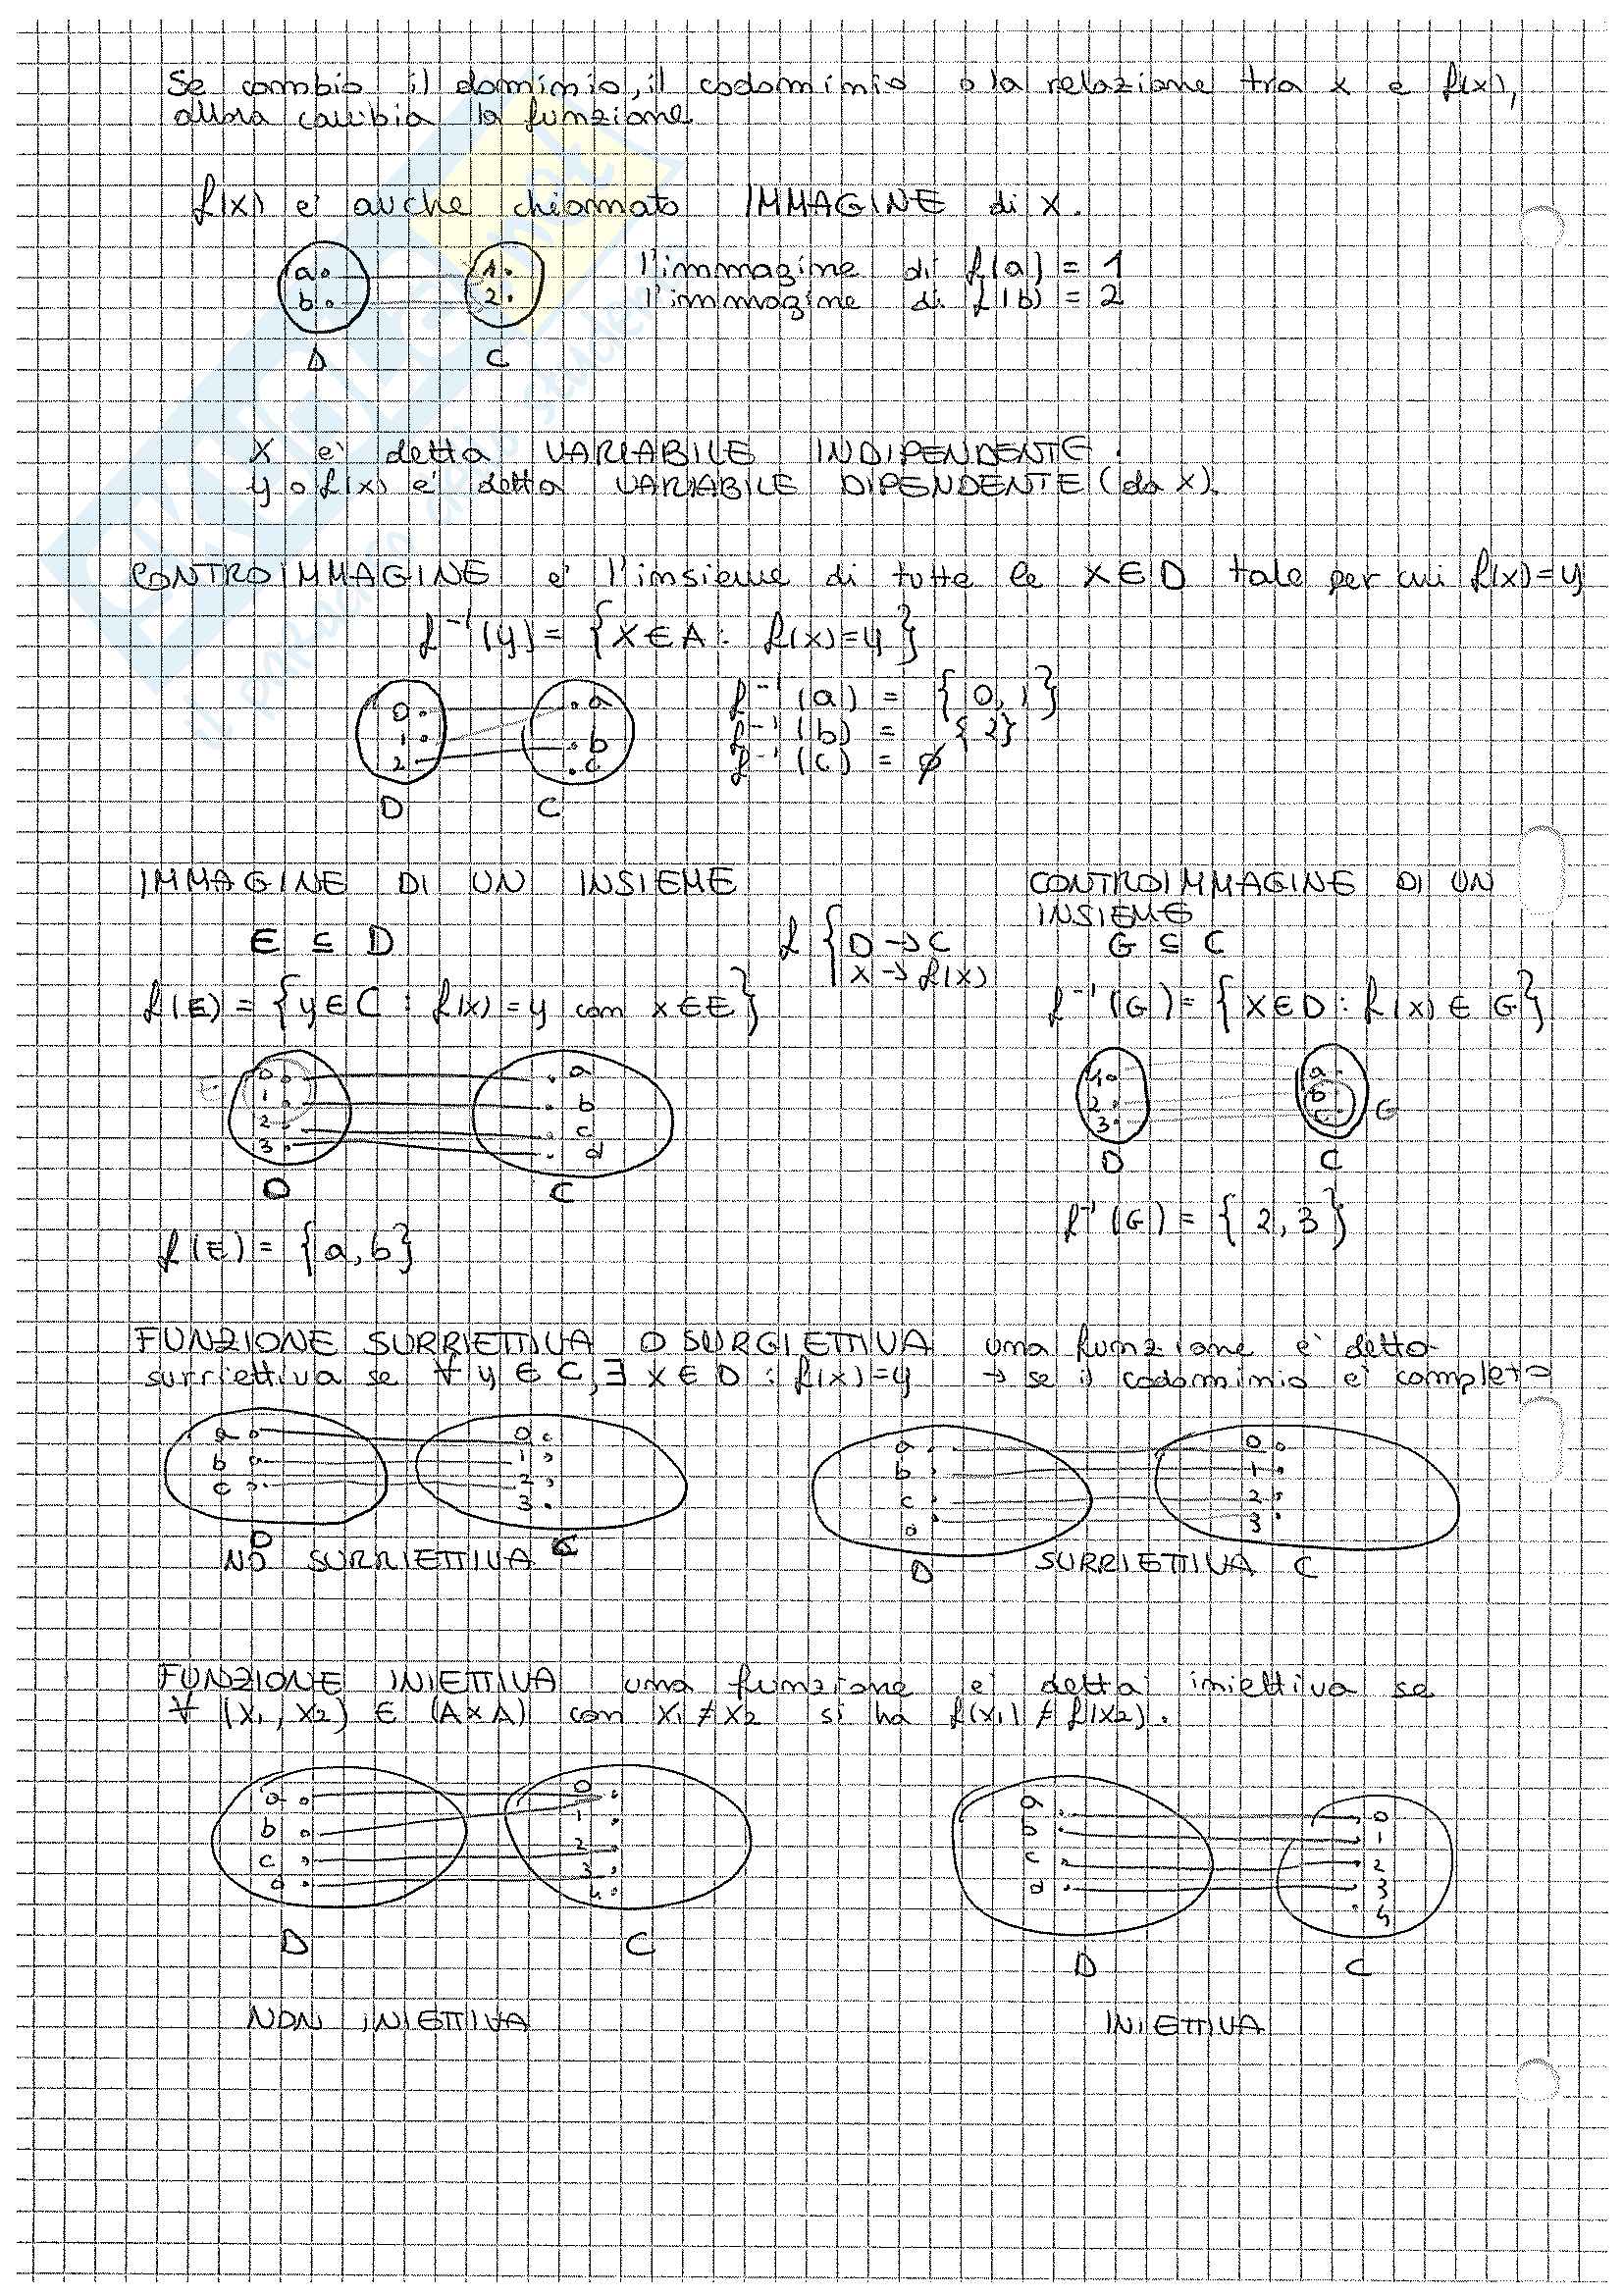 Se cambio il dominio, il codominio o la relazione tra x e f(x),
allora cambia la funzione.
f(x) e' anche chiamato IMMAGINE di x.
a 1 l'immagine di f(a) = 1
b 2 l'immagine di f(b) = 2
D C
X e' detta VARIABILE INDIPENDENTE.
y o f(x) e' detta VARIABILE DIPENDENTE (da x).
CONTROIMMAGINE e' l'insieme di tutte le X∈D tale per cui f(x)=y
f⁻¹(y) = {X∈A : f(x)=y}
0 a f⁻¹(a) = {0,1}
1 b f⁻¹(b) = {2}
2 c f⁻¹(c) = ∅
D C
IMMAGINE DI UN INSIEME
E ⊆ D
f(E) = {y∈C : f(x)=y con x∈E}
E
0 a
1 b
2 c
3 d
D C
f(E) = {a,b}
f { D → C
x → f(x)
CONTROIMMAGINE DI UN
INSIEME
G ⊆ C
f⁻¹(G) = {X∈D : f(x)∈G}
1 a
2 b
3 c G
D C
f⁻¹(G) = {2,3}
FUNZIONE SURRIETTIVA O SURGIETTIVA una funzione e' detta
surriettiva se ∀ y ∈ C, ∃ x ∈ D : f(x)=y → se il codominio e' completo
a 0 a 0
b 1 b 1
c 2 c 2
3 d 3
D C D C
NO SURRIETTIVA SURRIETTIVA
FUNZIONE INIETTIVA una funzione e' detta iniettiva se
∀ (X₁, X₂) ∈ (A×A) con X₁ ≠ X₂ si ha f(X₁) ≠ f(X₂).
a 0 a 0
b 1 b 1
c 2 c 2
d 3 d 3
4 4
D C D C
NON INIETTIVA INIETTIVA